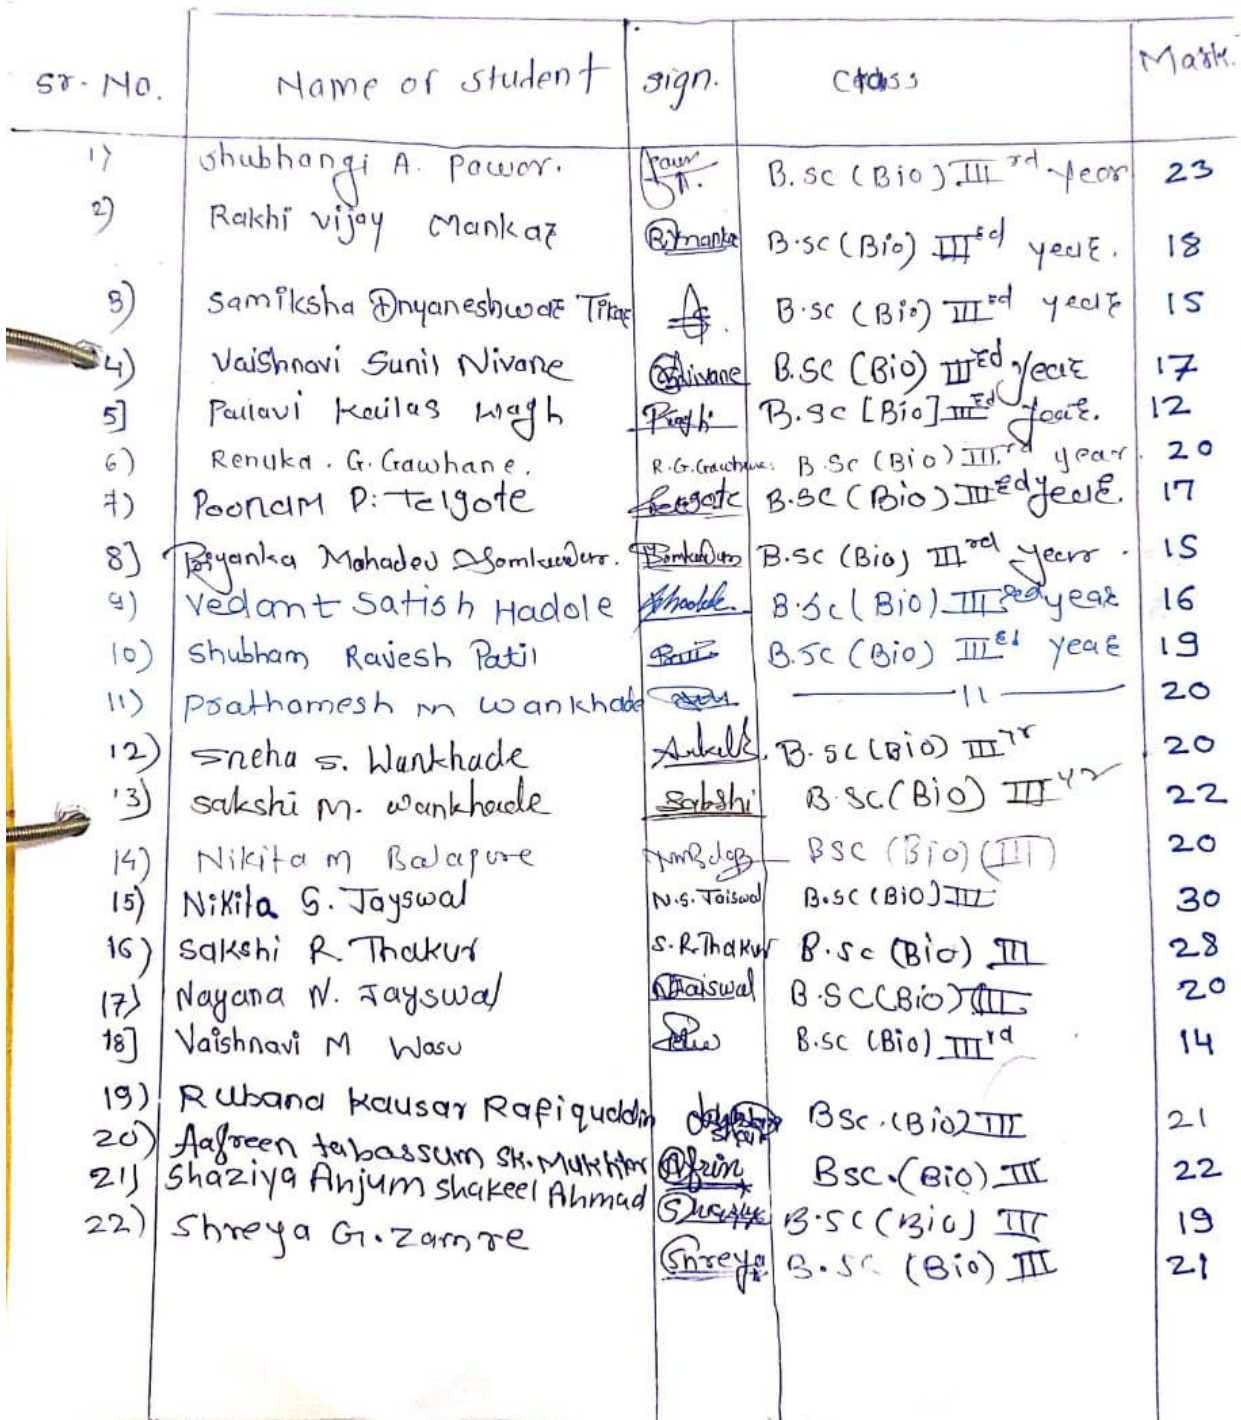 Sr. No. Name of student sign. Class Mark.
1) Shubhangi A. Pawar. B.sc (Bio) III rd year 23
2) Rakhi vijay Mankar B.sc (Bio) III rd year. 18
3) Samiksha Dnyaneshwar Tikar B.sc (Bio) III rd year 15
4) Vaishnavi Sunil Nivane Nivane B.SC (Bio) III rd year 17
5] Pallavi Kailas Wagh B.sc [Bio] III rd year. 12
6) Renuka. G. Gawhane. R.G.Gawhane. B.Sc (Bio) III rd year. 20
7) Poonam P. Telgote B.SC (Bio) III rd year. 17
8] Priyanka Mahadev B.sc (Bio) III rd year. 15
9) Vedant Satish Hadole B.Sc (Bio) III rd year 16
10) Shubham Rajesh Patil B.Sc (Bio) III rd year 19
11) Prathamesh M Wankhade — 11 — 20
12) Sneha S. Wankhade B.sc (Bio) III yr 20
13) Sakshi M. Wankhade Sakshi B.SC (Bio) III yr 22
14) Nikita M Balapure BSC (Bio) (III) 20
15) Nikita S. Jayswal N.S. Jaiswal B.SC (BIO) III 30
16) Sakshi R. Thakur S.R.Thakur B.Sc (Bio) III 28
17) Nayana N. Jayswal NJaiswal B.SC (Bio) III 20
18] Vaishnavi M Wasu B.SC (Bio) III rd 14
19) Rubana Kausar Rafiquddin BSc. (Bio) III 21
20) Aafreen tabassum SK. Mukhtar Afrin BSc. (Bio) III 22
21) Shaziya Anjum Shakeel Ahmad B.SC (Bio) III 19
22) Shreya G. Zamre Shreya B.SC (Bio) III 21